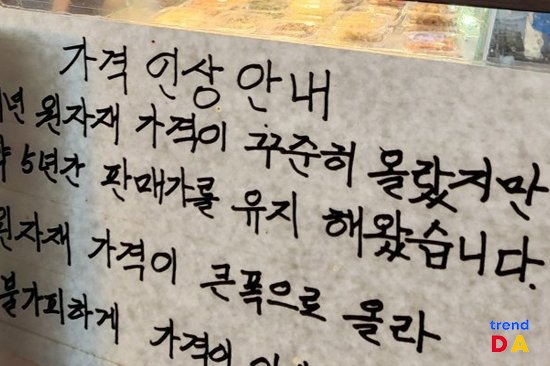 가격 인상 안내
년 원자재 가격이 꾸준히 올랐지만
5년간 판매가를 유지 해왔습니다.
원자재 가격이 큰폭으로 올라
불가피하게 가격이
trend
DA